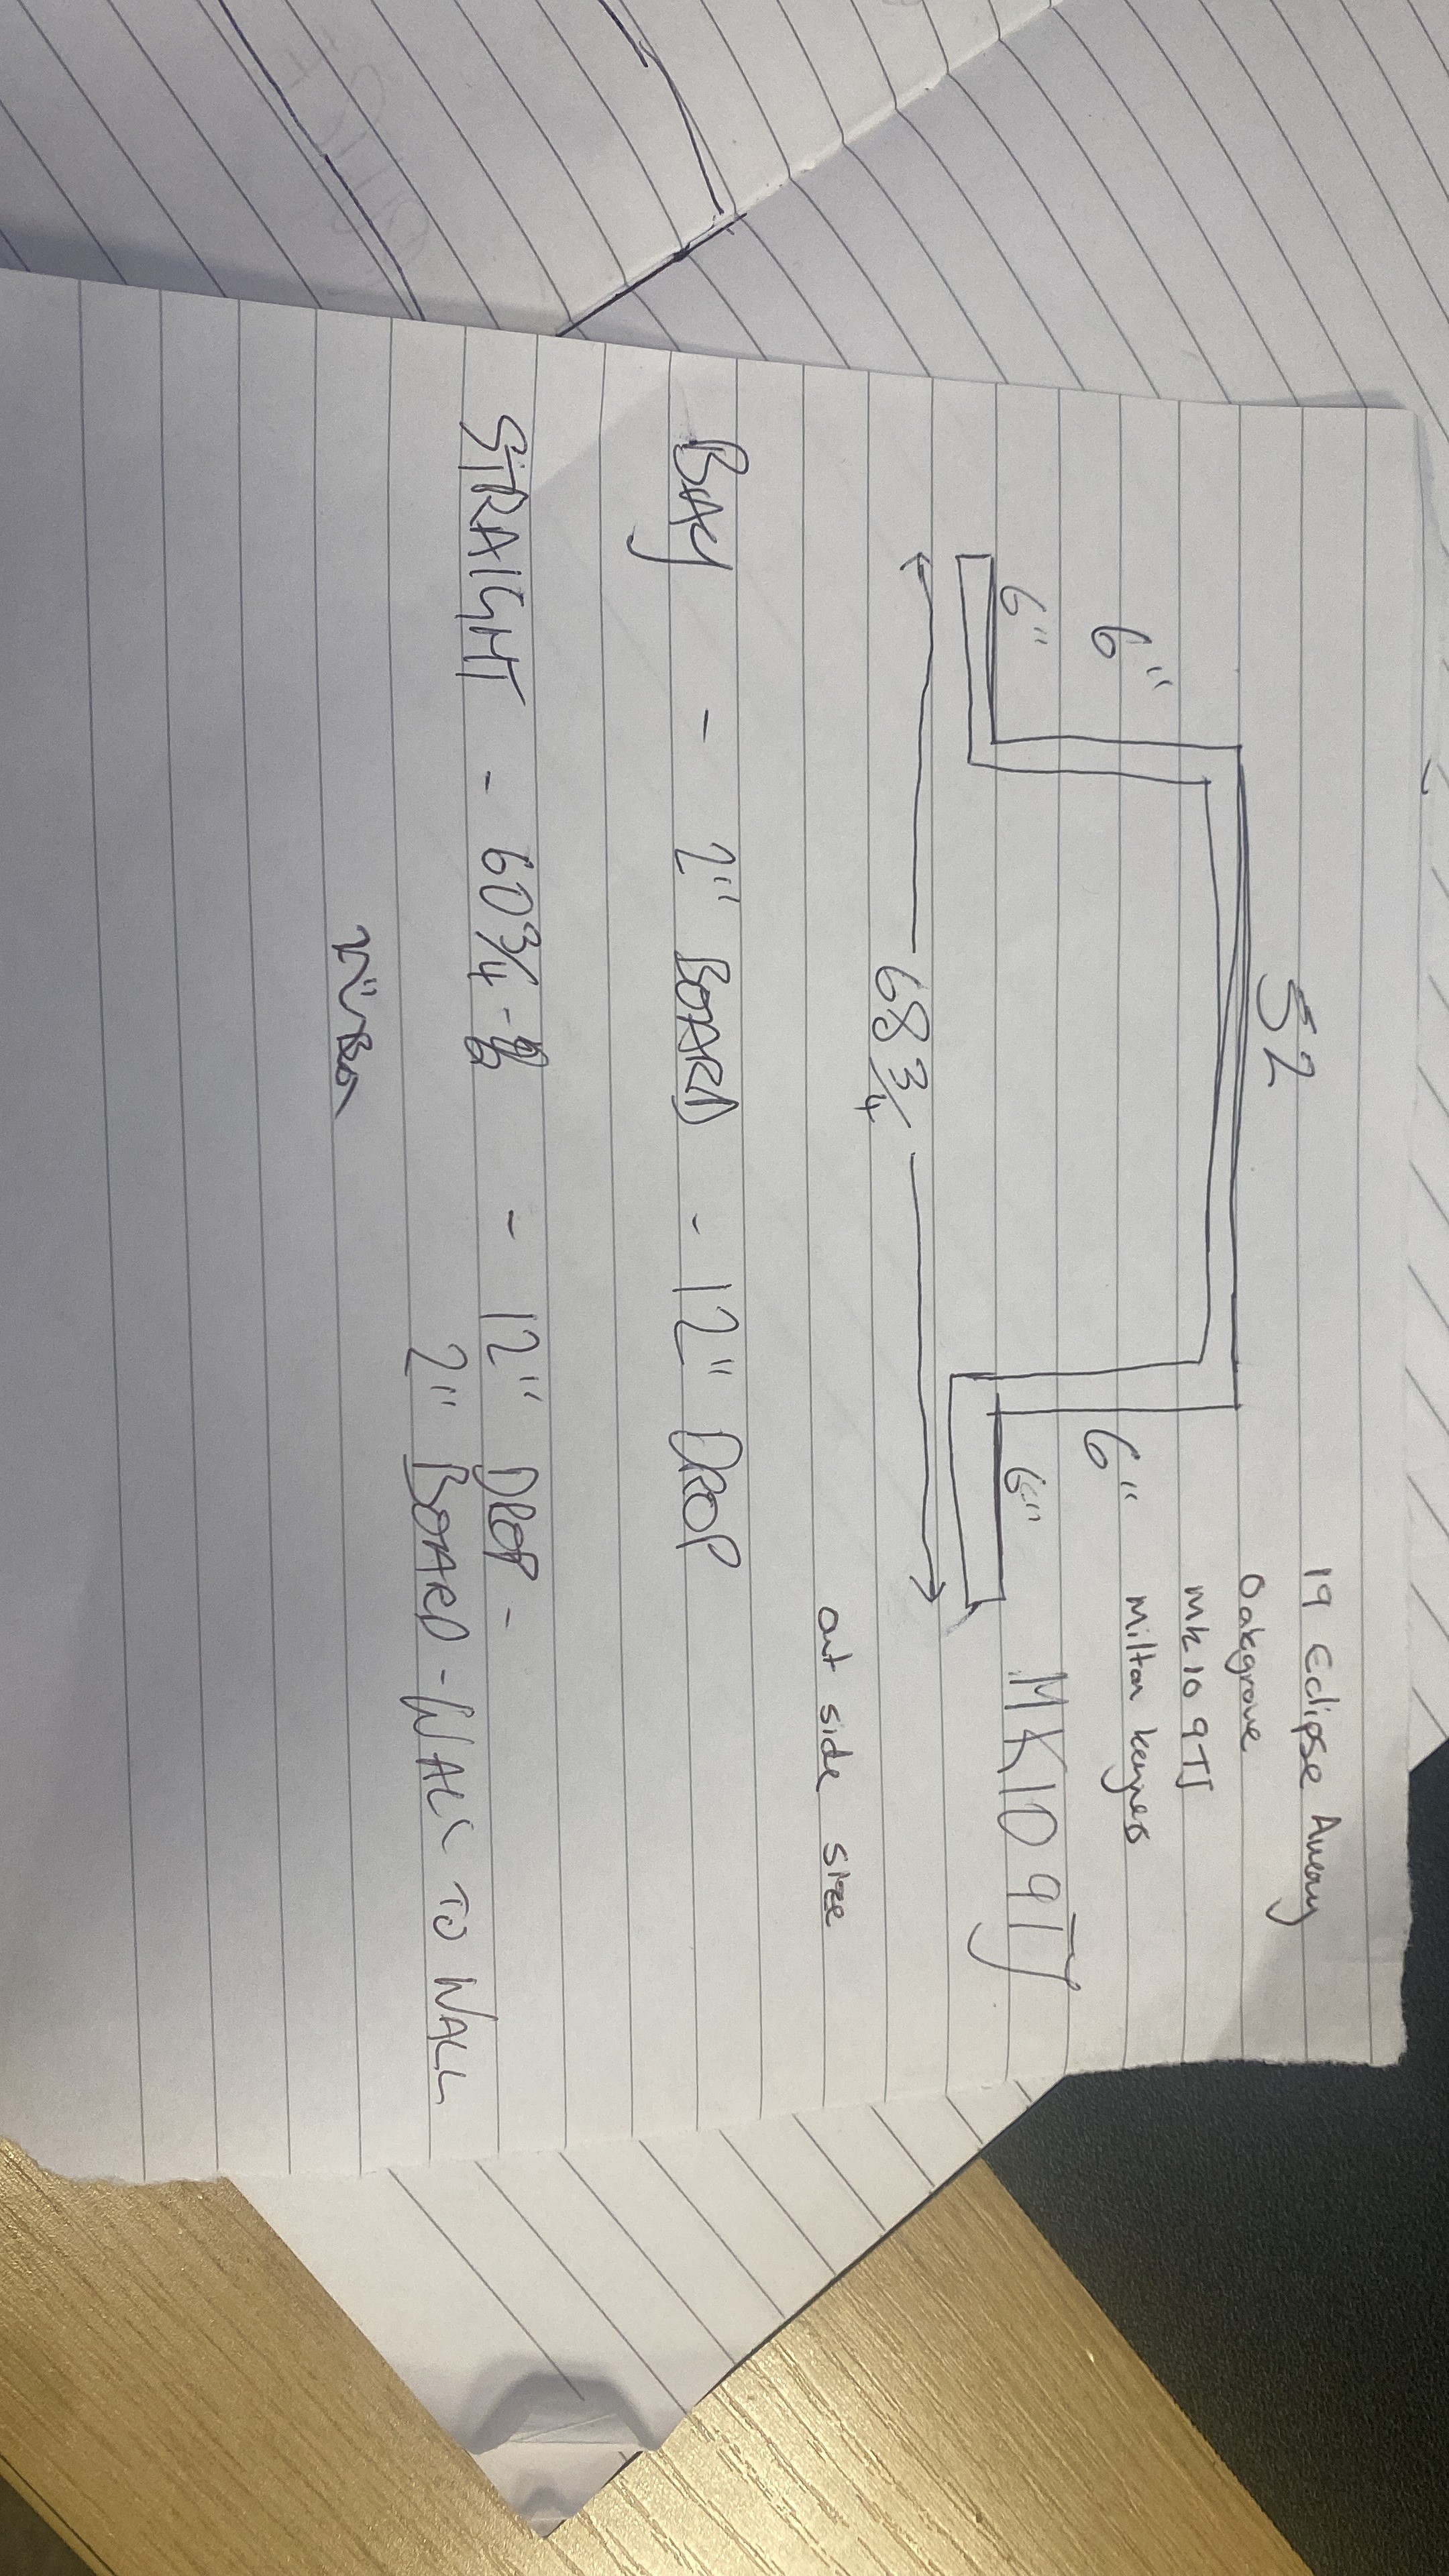 19 Eclipse Aveny
Oakgrove
mk10 9TJ
Milton keynes
52
6"
6"
6"
6"
MK10 9TJ
68 3/4
out side size
BAY - 2" BOARD - 12" DROP
STRAIGHT - 60 3/4 - 12" DROP -
2" BOARD - WALL TO WALL